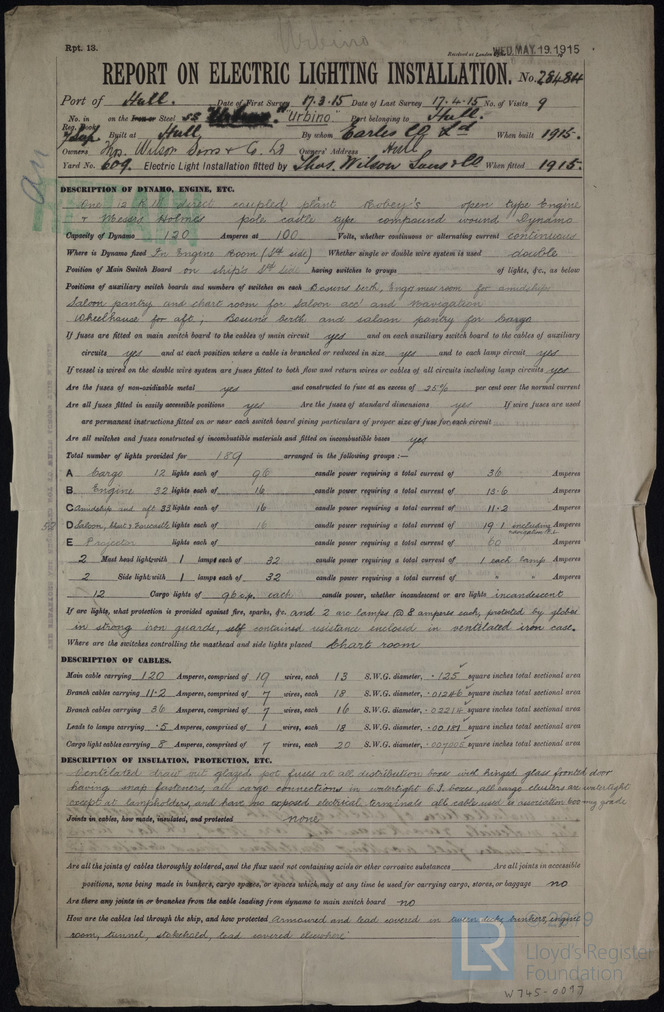 Rpt. 13.
Received at London
WED. MAY. 19. 1915
REPORT ON ELECTRIC LIGHTING INSTALLATION. No. 28484
Port of Hull. Date of First Survey 17.3.15 Date of Last Survey 17.4.15 No. of Visits 9
No. in Reg. Book on the Iron or Steel SS "Urbino" Port belonging to Hull.
Built at Hull By whom Earles Co Ld When built 1915.
Owners Thos. Wilson Sons & Co. Ld Owners' Address Hull
Yard No. 609. Electric Light Installation fitted by Thos. Wilson Sons & Co When fitted 1915.
DESCRIPTION OF DYNAMO, ENGINE, ETC.
One 12 K.W. direct coupled plant Robey's open type Engine
& Messrs Holmes pole castle type compound wound Dynamo
Capacity of Dynamo 120 Amperes at 100 Volts, whether continuous or alternating current continuous
Where is Dynamo fixed In Engine Room (St side) Whether single or double wire system is used double
Position of Main Switch Board on ship's St side having switches to groups of lights, &c., as below
Positions of auxiliary switch boards and numbers of switches on each Bosuns berth, Engs mess room for amidship
Saloon pantry and chart room for Saloon acc and Navigation
Wheelhouse for aft; Bosuns berth and saloon pantry for Cargo
If fuses are fitted on main switch board to the cables of main circuit yes and on each auxiliary switch board to the cables of auxiliary
circuits yes and at each position where a cable is branched or reduced in size yes and to each lamp circuit yes
If vessel is wired on the double wire system are fuses fitted to both flow and return wires or cables of all circuits including lamp circuits yes
Are the fuses of non-oxidisable metal yes and constructed to fuse at an excess of 25% per cent over the normal current
Are all fuses fitted in easily accessible positions yes Are the fuses of standard dimensions yes If wire fuses are used
are permanent instructions fitted on or near each switch board giving particulars of proper size of fuse for each circuit
Are all switches and fuses constructed of incombustible materials and fitted on incombustible bases yes
Total number of lights provided for 189 arranged in the following groups :—
A Cargo 12 lights each of 96 candle power requiring a total current of 36 Amperes
B Engine 32 lights each of 16 candle power requiring a total current of 13.6 Amperes
C Amidship and aft 33 lights each of 16 candle power requiring a total current of 11.2 Amperes
D Saloon, & Forecastle lights each of 16 candle power requiring a total current of 19.1 including navigation Amperes
E Projector lights each of candle power requiring a total current of 60 Amperes
2 Mast head light with 1 lamps each of 32 candle power requiring a total current of 1 each lamp Amperes
2 Side light with 1 lamps each of 32 candle power requiring a total current of " " Amperes
12 Cargo lights of 96 c.p. each candle power, whether incandescent or arc lights incandescent
If arc lights, what protection is provided against fire, sparks, &c. and 2 arc lamps @ 8 amperes each, protected by globes
in strong iron guards, self contained resistance inclosed in ventilated iron case.
Where are the switches controlling the masthead and side lights placed Chart room
DESCRIPTION OF CABLES.
Main cable carrying 120 Amperes, comprised of 19 wires, each 13 S.W.G. diameter, .125 square inches total sectional area
Branch cables carrying 11.2 Amperes, comprised of 7 wires, each 18 S.W.G. diameter, .01246 square inches total sectional area
Branch cables carrying 36 Amperes, comprised of 7 wires, each 16 S.W.G. diameter, .02214 square inches total sectional area
Leads to lamps carrying .5 Amperes, comprised of 1 wires, each 18 S.W.G. diameter, .00181 square inches total sectional area
Cargo light cables carrying 8 Amperes, comprised of 7 wires, each 20 S.W.G. diameter, .007005 square inches total sectional area
DESCRIPTION OF INSULATION, PROTECTION, ETC.
Ventilated draw out glazed pot fuses at all distribution boxes with hinged glass fronted door
having snap fasteners, all cargo connections in watertight C.I. boxes, all cargo clusters are watertight
except at lampholders, and have no exposed electrical terminals all cable used is association 600 meg grade
Joints in cables, how made, insulated, and protected none
Are all the joints of cables thoroughly soldered, and the flux used not containing acids or other corrosive substances Are all joints in accessible
positions, none being made in bunkers, cargo spaces, or spaces which may at any time be used for carrying cargo, stores, or baggage no
Are there any joints in or branches from the cable leading from dynamo to main switch board no
How are the cables led through the ship, and how protected Armoured and lead covered in tween decks bunkers, engine
room, tunnel, stokehold, lead covered elsewhere
© 2019
LR
Lloyd's Register
Foundation
W745-0097